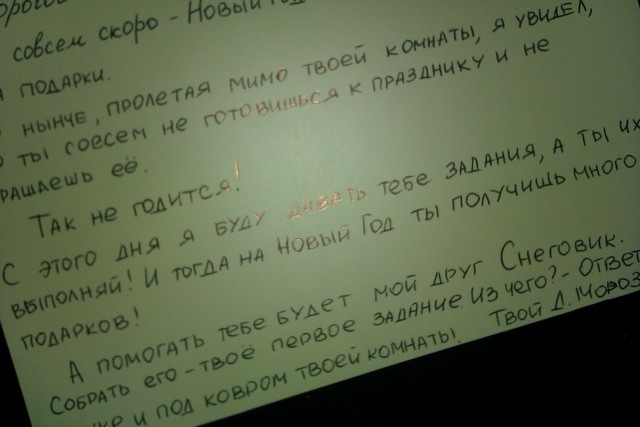 совсем скоро - Новый Год
подарки.
нынче, пролетая мимо твоей комнаты, я увидел,
ты совсем не готовишься к празднику и не
рашаешь её.
Так не годится!
С этого дня я буду давать тебе задания, а ты их
выполняй! И тогда на Новый Год ты получишь много
подарков!
А помогать тебе будет мой друг Снеговик.
Собрать его - твоё первое задание. Из чего? - Ответ
и под ковром твоей комнаты! Твой Д. Мороз